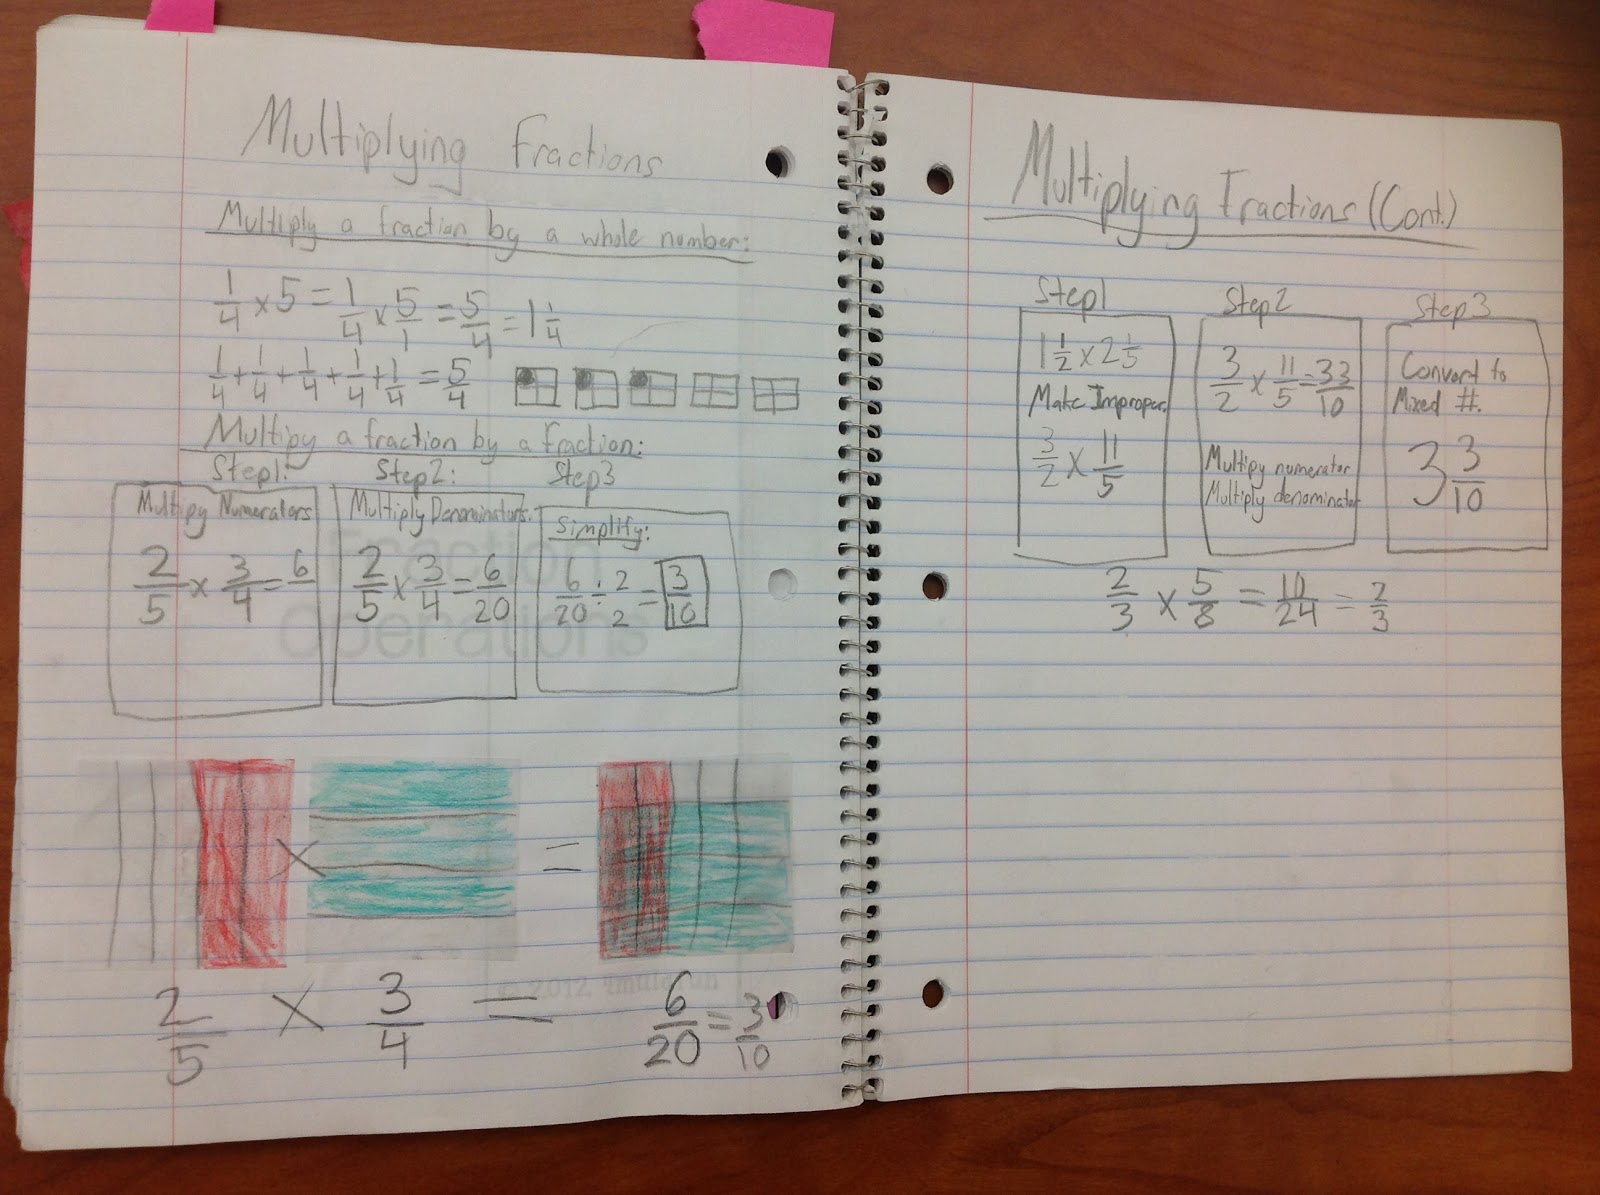 Multiplying Fractions
Multiply a fraction by a whole number:
1/4 × 5 = 1/4 × 5/1 = 5/4 = 1 1/4
1/4 + 1/4 + 1/4 + 1/4 + 1/4 = 5/4
Multipy a fraction by a fraction:
Step1: Step2: Step3
Multipy Numerators
2/5 × 3/4 = 6/
Multiply Denominators.
2/5 × 3/4 = 6/20
Simplify:
6/20 ÷ 2/2 = 3/10
Fraction
Operations
× =
© 2012
2/5 × 3/4 = 6/20 = 3/10
Multiplying Fractions (Cont.)
Step1
1 1/2 × 2 1/5
Make Improper.
3/2 × 11/5
Step2
3/2 × 11/5 = 33/10
Multipy numerator
Multiply denominator
Step3
Convert to
Mixed #.
3 3/10
2/3 × 5/8 = 10/24 = 2/3